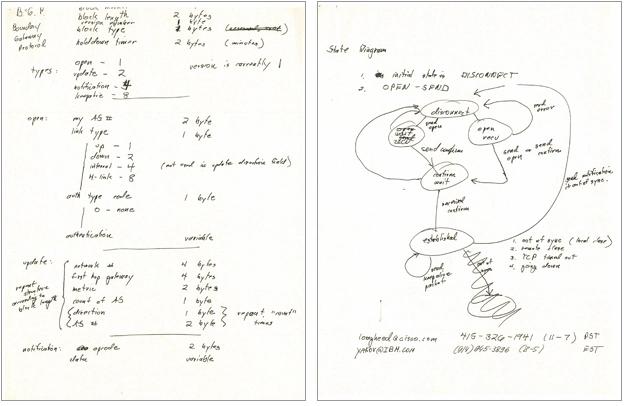 B.G.P.
Boundary
Gateway
Protocol
block length 2 bytes
version number 1 byte
block type 2 bytes
holddown timer 2 bytes (minutes)
types:
open - 1
update - 2
notification -
keepalive - 8
version is currently 1
open:
my AS # 2 byte
link type 1 byte
up - 1
down - 2
internal - 4 (not used in update direction field)
H-link - 8
auth type code 1 byte
0 - none
authentication variable
update:
repeat
according to
block length
network # 4 bytes
first hop gateway 4 bytes
metric 2 bytes
count of AS 1 byte
direction 1 byte
AS # 2 byte
repeat "count"
times
notification: opcode 2 bytes
data variable
State Diagram
1. initial state is DISCONNECT
2. OPEN-SEND
disconnect
send
open
open
recv
send confirm
send or send
open confirm
confirm
wait
send notification
if out of sync.
received
confirm
established
send
keepalive
packet
out of
sync
1. out of sync (local close)
2. remote close
3. TCP timed out
4. going down
lougheed@cisco.com 415-326-1941 (11-7) PST
YAKOV@IBM.COM (914)945-3896 (8-5) EST